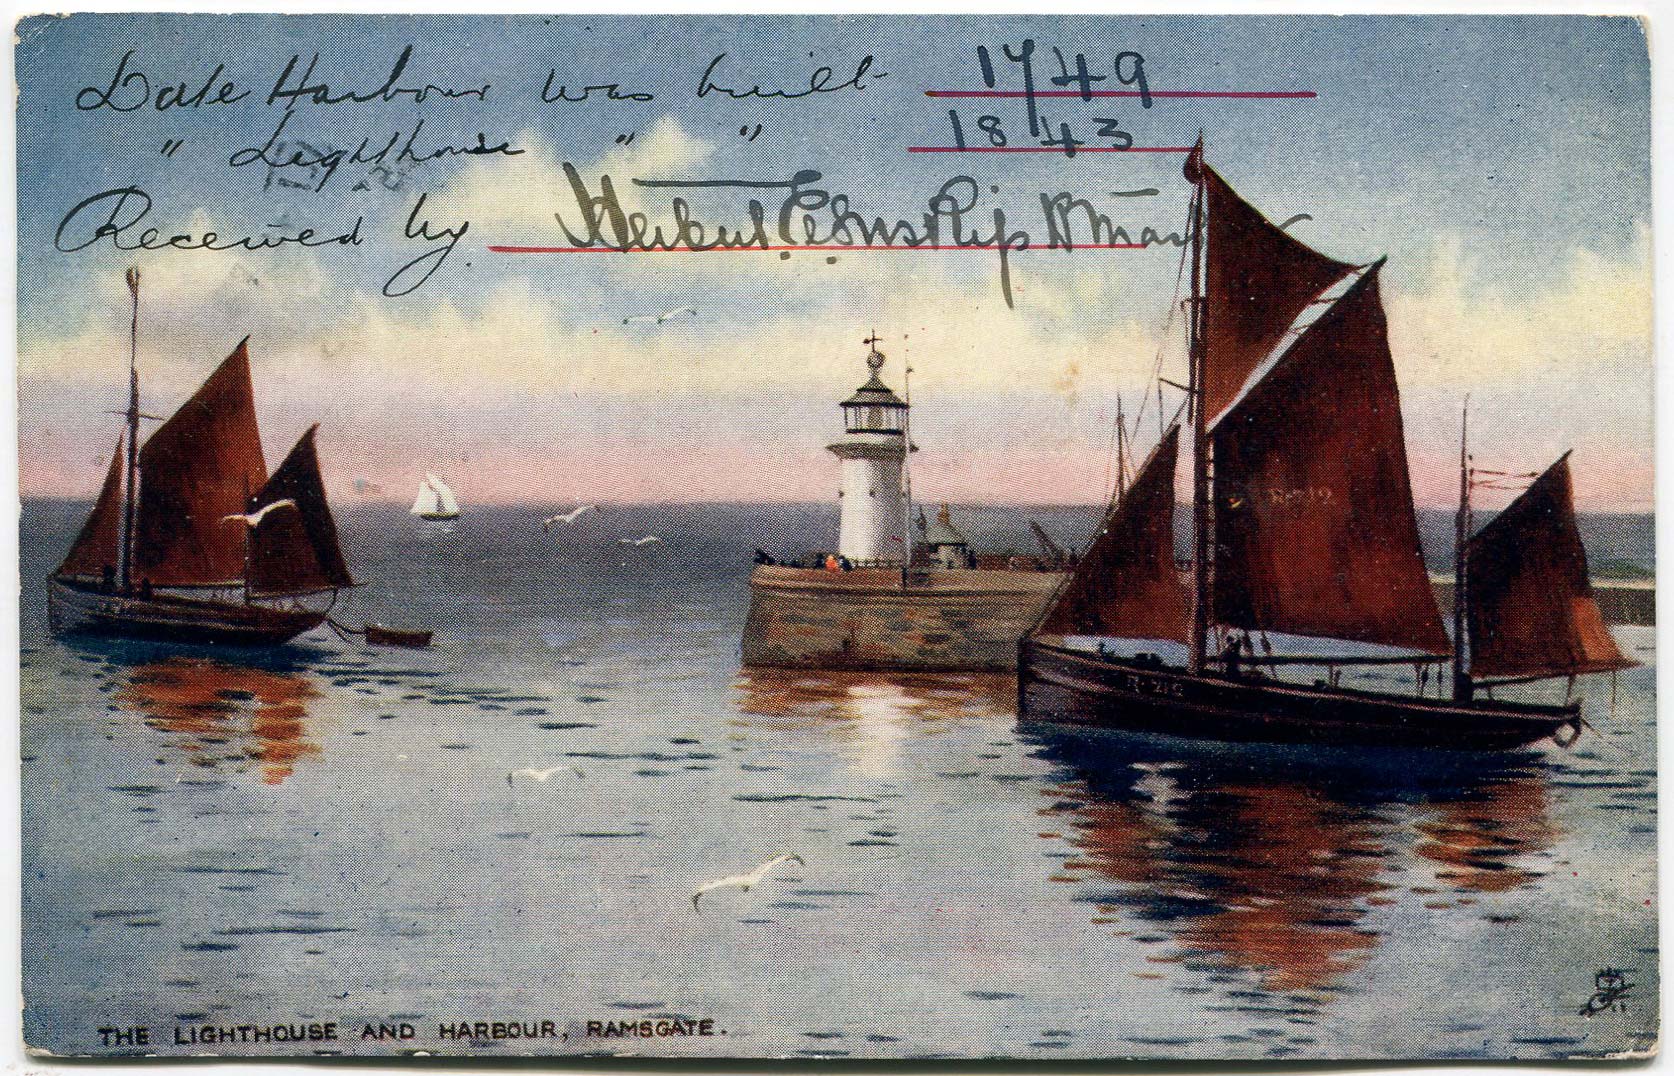 Date Harbour was built 1749
" Lighthouse " " 1843
Received by
R·712
R·212
THE LIGHTHOUSE AND HARBOUR, RAMSGATE.